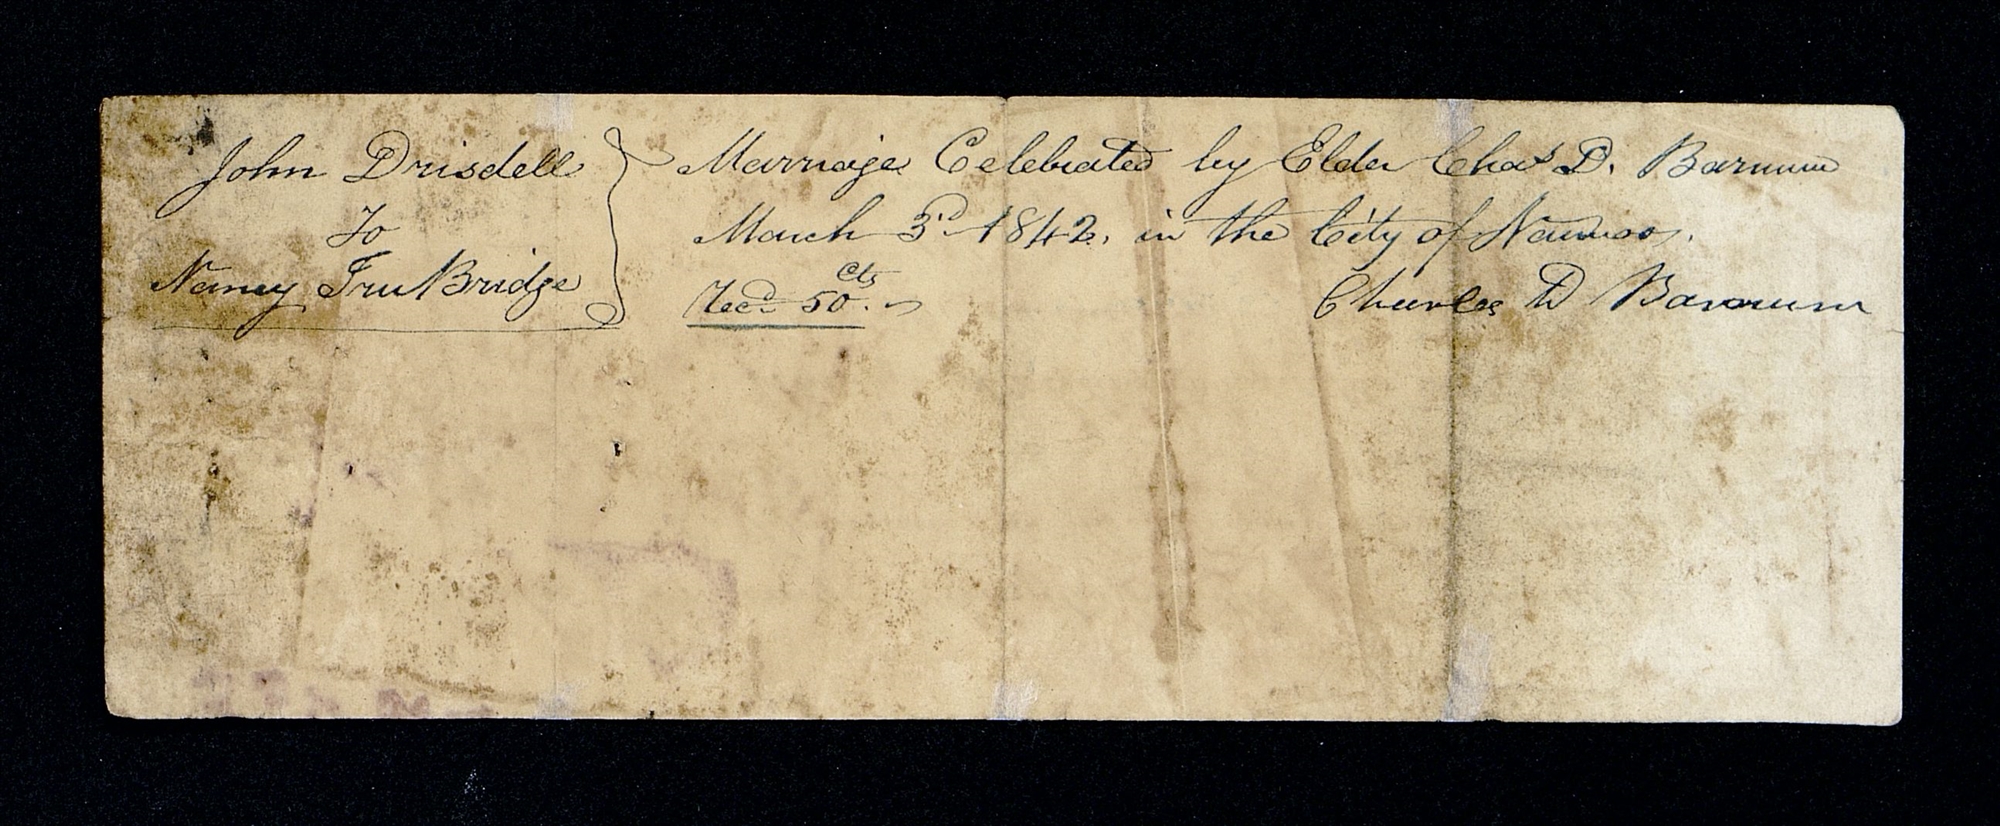 John Drisdell } Marriage Celebrated by Elder Chas D. Barnum
To March 3d 1842, in the City of Nauvoo.
Nancy TruBridge Recd 50 cts. Charles D Barnum